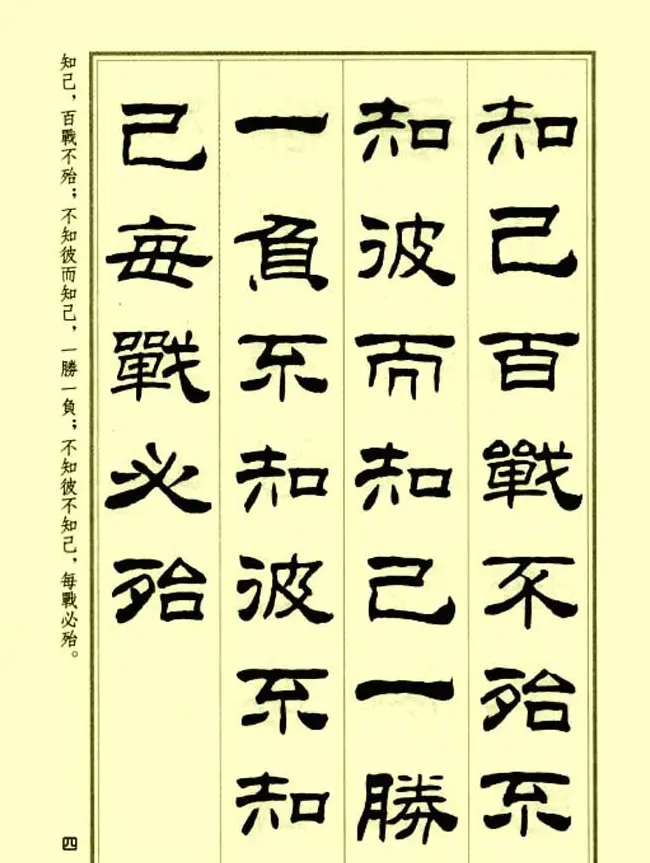 知己百戰不殆不
知彼而知己一勝
一負不知彼不知
己每戰必殆
知己，百戰不殆；不知彼而知己，一勝一負；不知彼不知己，每戰必殆。
四